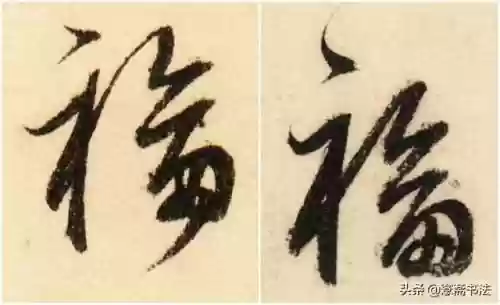 福 福
头条 @斋书法